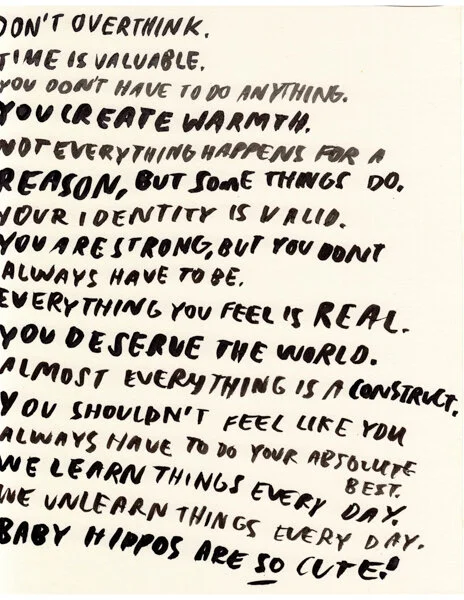 DON'T OVERTHINK.
TIME IS VALUABLE.
YOU DON'T HAVE TO DO ANYTHING.
YOU CREATE WARMTH.
NOT EVERYTHING HAPPENS FOR A
REASON, BUT SOME THINGS DO.
YOUR IDENTITY IS VALID.
YOU ARE STRONG, BUT YOU DON'T
ALWAYS HAVE TO BE.
EVERYTHING YOU FEEL IS REAL.
YOU DESERVE THE WORLD.
ALMOST EVERYTHING IS A CONSTRUCT.
YOU SHOULDN'T FEEL LIKE YOU
ALWAYS HAVE TO DO YOUR ABSOLUTE
BEST.
WE LEARN THINGS EVERY DAY.
WE UNLEARN THINGS EVERY DAY.
BABY HIPPOS ARE SO CUTE!